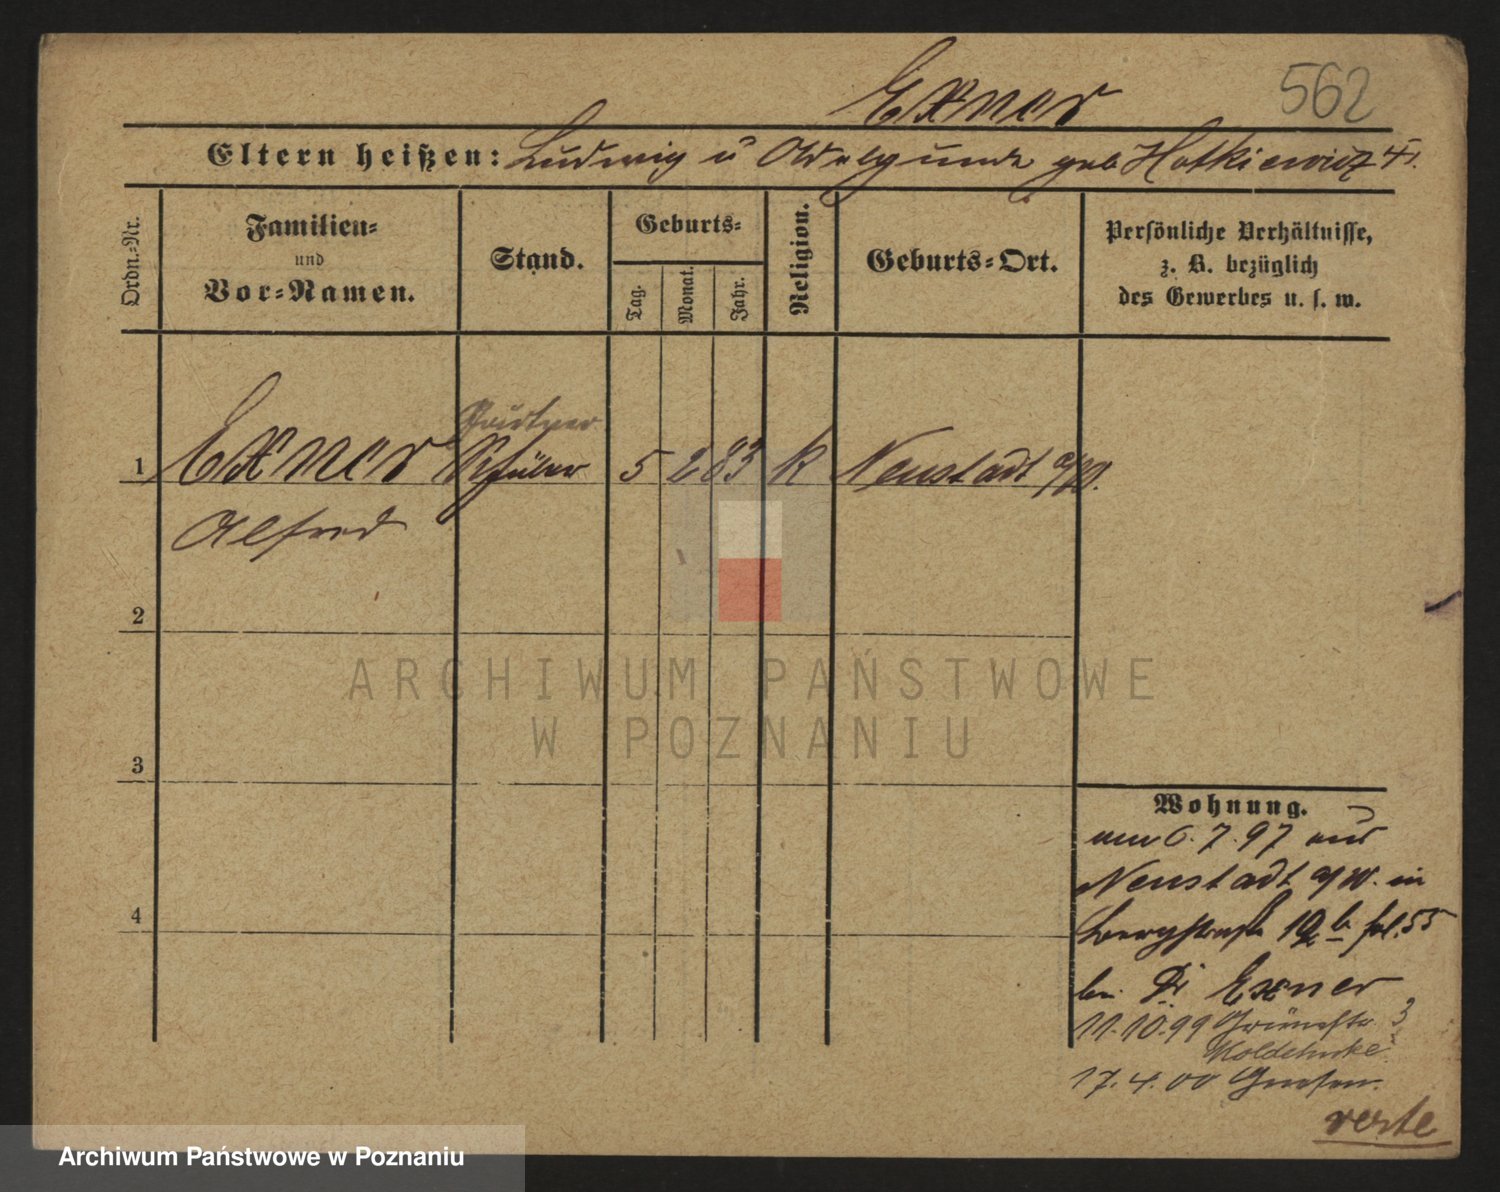 Exner
562
Eltern heißen: Ludwig u Adelgunde geb Hatkiewicz
Ordn.-Nr.
Familien-
und
Vor-Namen.
Stand.
Geburts-
Tag.
Monat.
Jahr.
Religion.
Geburts-Ort.
Persönliche Verhältnisse,
z. B. bezüglich
des Gewerbes u. s. w.
Gärtner
1 Exner Schüler 5 2 83 k Neustadt a/W.
Alfred
2
3
4
Wohnung.
am 6.7.97 aus
Neustadt a/W. in
Bergstraße fol. 55
bei Dr Exner
11.10.99 Grünestr 3
17.4.00 Gnesen.
verte
ARCHIWUM PAŃSTWOWE
W POZNANIU
Archiwum Państwowe w Poznaniu